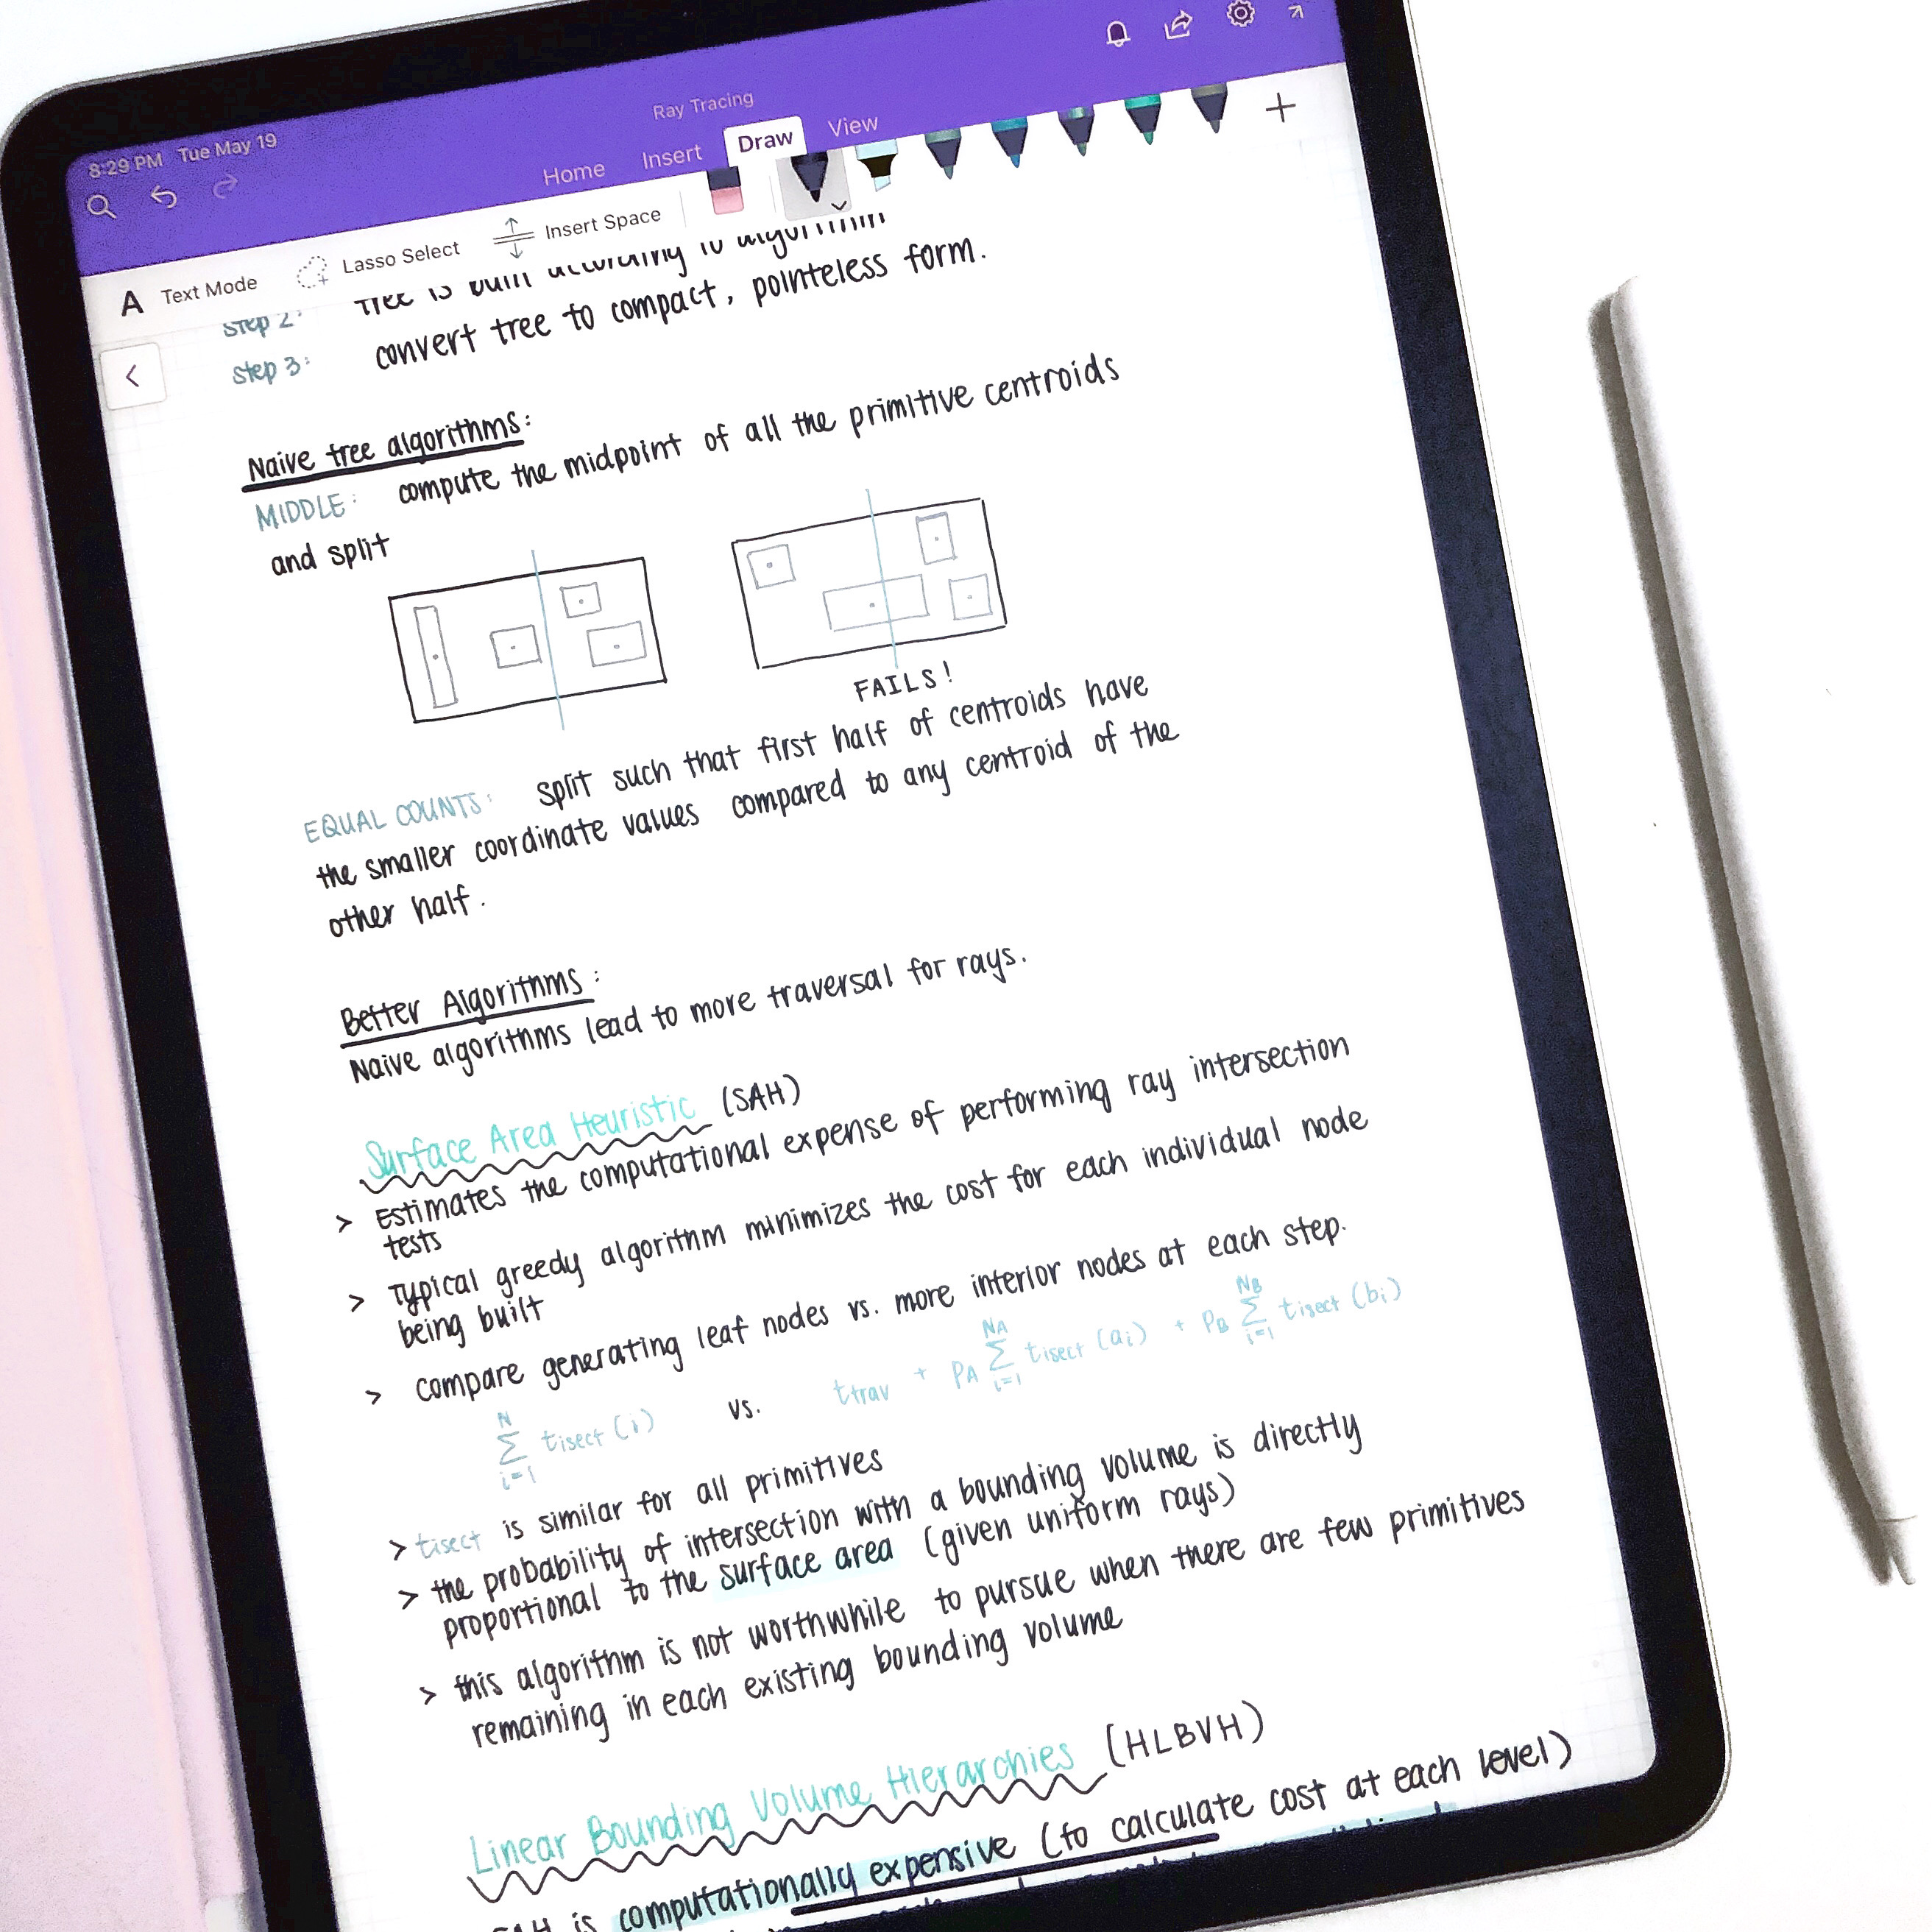 8:29 PM Tue May 19
Ray Tracing
Home Insert Draw View
A Text Mode Lasso Select Insert Space
Step 2: Tree is built according to algorithm
Step 3: convert tree to compact, pointeless form.
Naive tree algorithms:
MIDDLE: compute the midpoint of all the primitive centroids
and split
FAILS!
EQUAL COUNTS: split such that first half of centroids have
the smaller coordinate values compared to any centroid of the
other half.
Better Algorithms:
Naive algorithms lead to more traversal for rays.
Surface Area Heuristic (SAH)
> Estimates the computational expense of performing ray intersection
tests
> Typical greedy algorithm minimizes the cost for each individual node
being built
> compare generating leaf nodes vs. more interior nodes at each step.
N ∑ i=1 tisect (i) vs. ttrav + PA NA ∑ i=1 tisect (ai) + PB NB ∑ i=1 tisect (bi)
> tisect is similar for all primitives
> the probability of intersection with a bounding volume is directly
proportional to the surface area (given uniform rays)
> this algorithm is not worthwhile to pursue when there are few primitives
remaining in each existing bounding volume
Linear Bounding Volume Hierarchies (HLBVH)
SAH is computationally expensive (to calculate cost at each level)